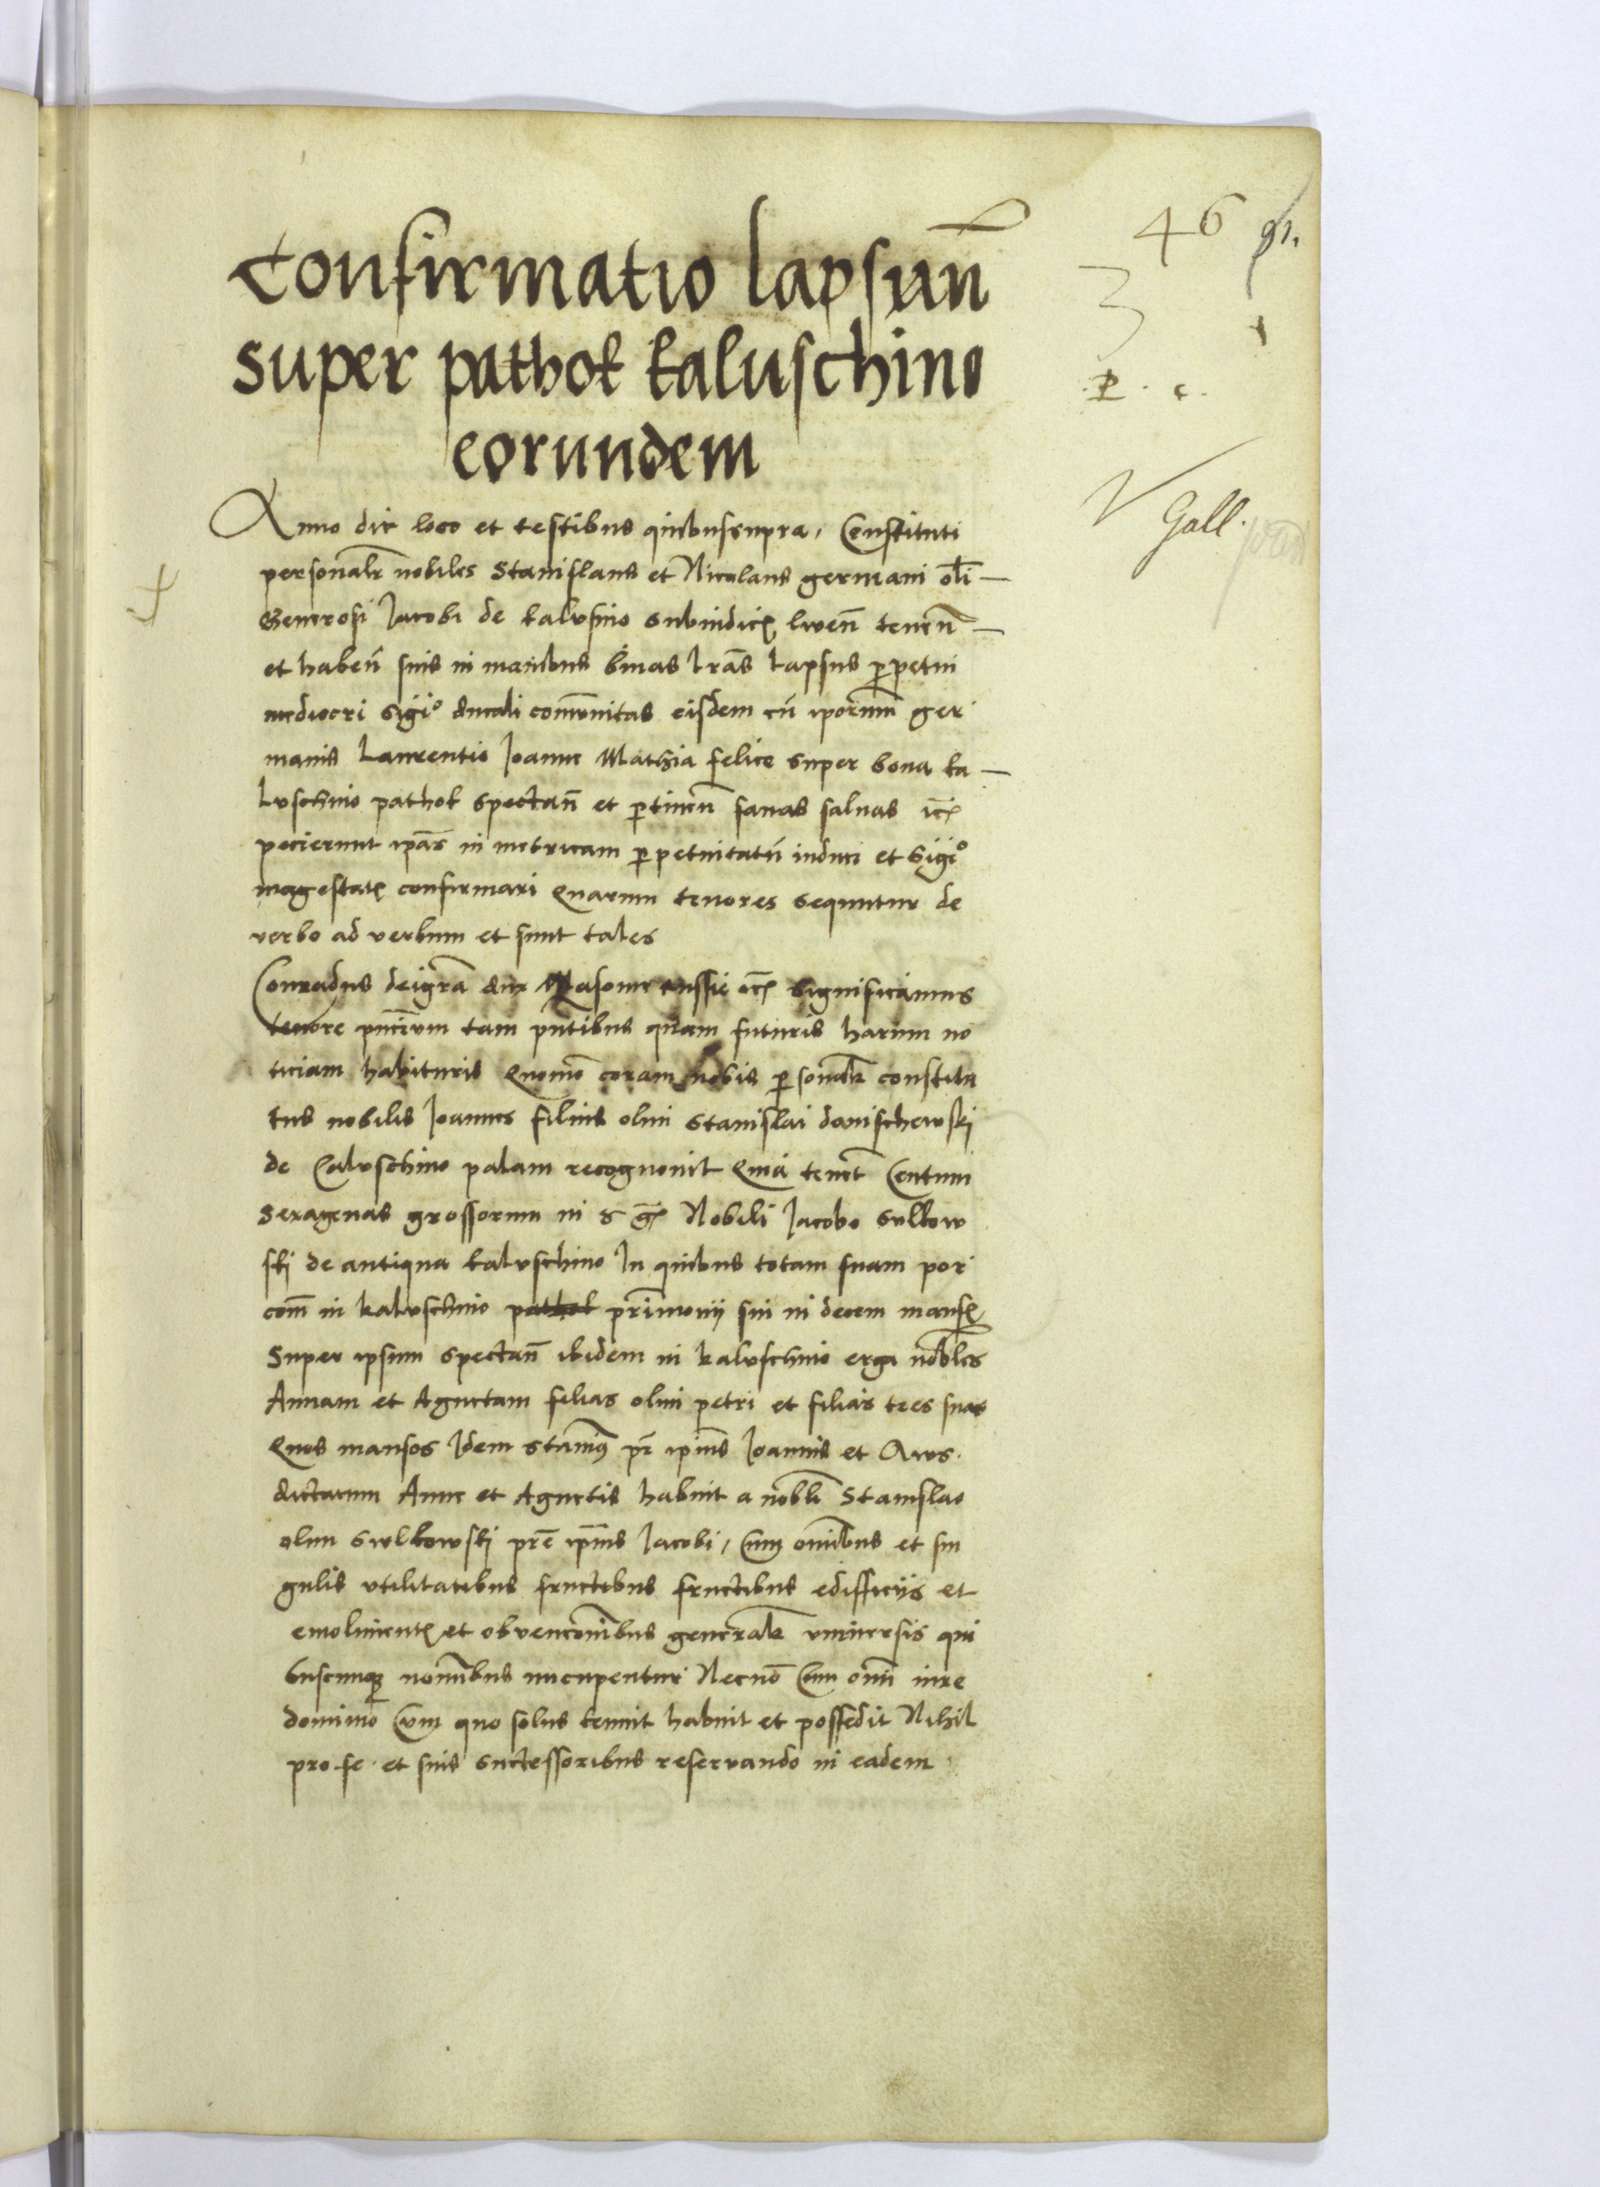 46
Confirmatio lapsuu̅
super pathok kaluschino
eorundem
Anno die loco et testibus quibussupra, Constituti
personalr̅ nobiles Stanislaus et Nicolaus germani oli̅
Generosi Jacobi de kalusino subiudicis liwen̅ tenen̅
et haben̅ suis in manibus binas lr̅as lapsus perpetui
mediocri sigio ducali com̅unitas eisdem cu̅ ipsorum ger
manis Laurentio Joanne Mathia felice super bona ka
luschino pathok spectan̅ et pertinen̅ sanas saluas etc
pecierunt ip̅as in metricam perpetuitatu̅ induci et sigio
magestatis confirmari Quarum tenores sequntur de
verbo ad verbum et sunt tales
Conradus deigr̅a dux Masouie russie etc significamus
tenore pn̅cium tam pn̅tibus quam futuris harum no
ticiam habituris Quomo̅ coram nobis personalr̅ constitu
tus nobilis Joannes filius olim Stanislai danischewski
de Caluschino palam recognouit Quia tenet̅ Centum
sexagenas grossorum in Nobili Jacobo sulkow
ski de antiqua kaluschino In quibus totam suam por
com̅ in kaluschino pathok pr̅imonij sui in decem mansis
Super ipsum spectan̅ ibidem in kaluschino erga nobl̅es
Annam et Agnetam filias olim petri et filias suas
Quos mansos Idem pr̅ ip̅ius Joannis et Aws
dictarum Anne et Agnetis habuit a nobli̅ Stanislao
olim swlkowski pr̅e ip̅ius Jacobi, Cum omi̅bus et sin
gulis vtilitatibus fructibus fructibus edifficijs et
emolimentis et obvencoi̅bus generalr̅ vniuersis qui
buscunque noi̅bus nuncupentur Necno̅ Cum om̅i iure
dominio Cum quo solus tenuit habuit et possedit Nihil
pro se et suis suctessoribus reservando in eadem
3
P. c.
V Gall.